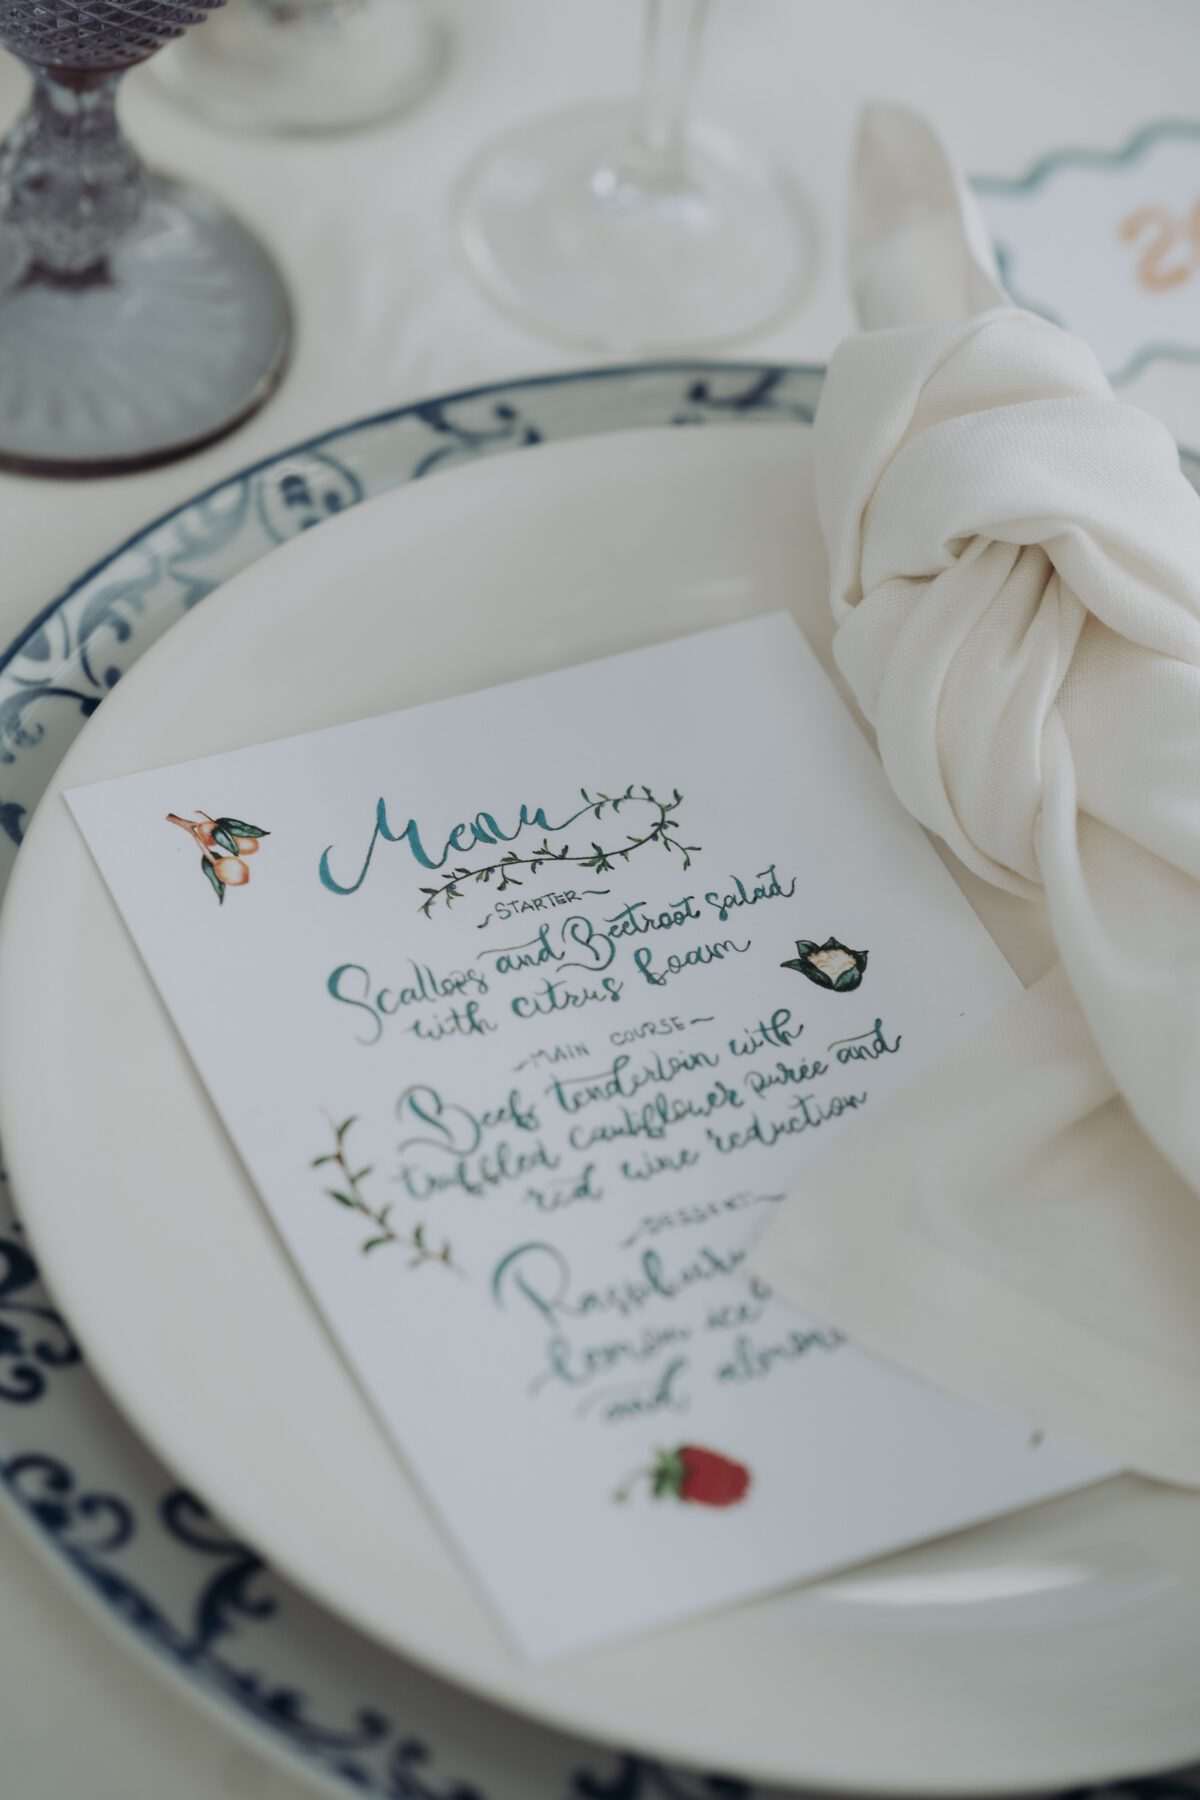 Menu
STARTER
Scallops and Beetroot salad
with citrus foam
MAIN COURSE
Beef tenderloin with
truffled cauliflower purée and
red wine reduction
DESSERT
lemon ice
and